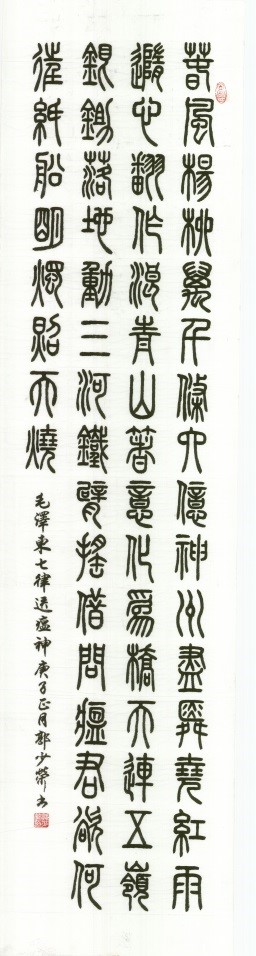 春風楊柳萬千條六億神州盡舜堯紅雨
隨心翻作浪青山著意化為橋天連五嶺
銀鋤落地動三河鐵臂搖借問瘟君欲何
往紙船明燭照天燒
毛澤東七律送瘟神庚子正月郭少榮書